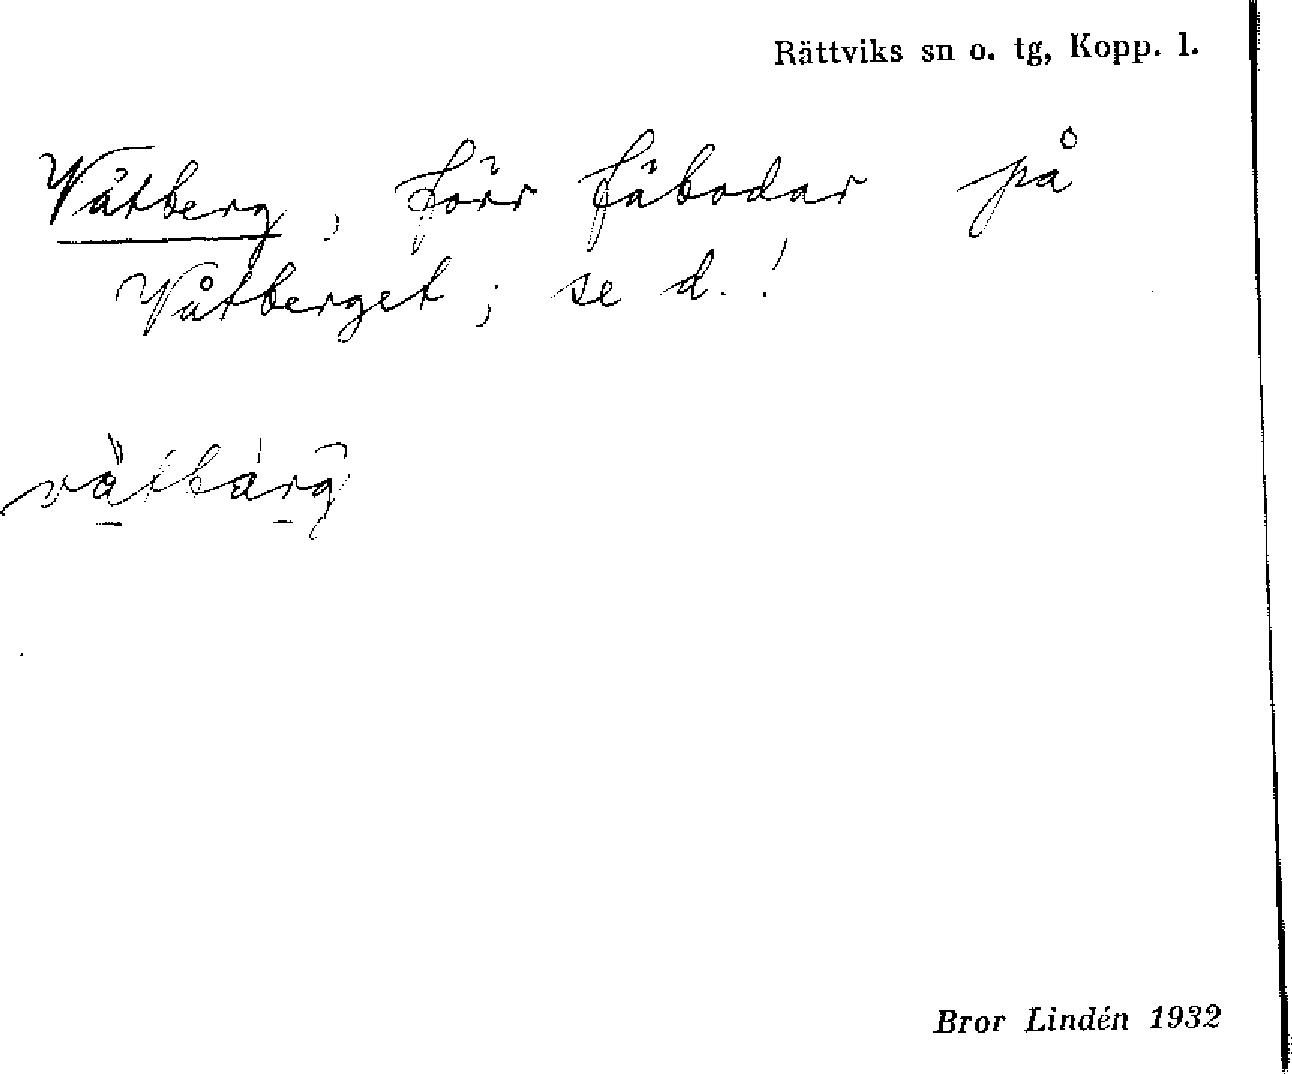 Rättviks sn o. tg, Kopp. l.
Våtberg, förr fäbodar på
Våtberget; se d.!
Bror Lindén 1932